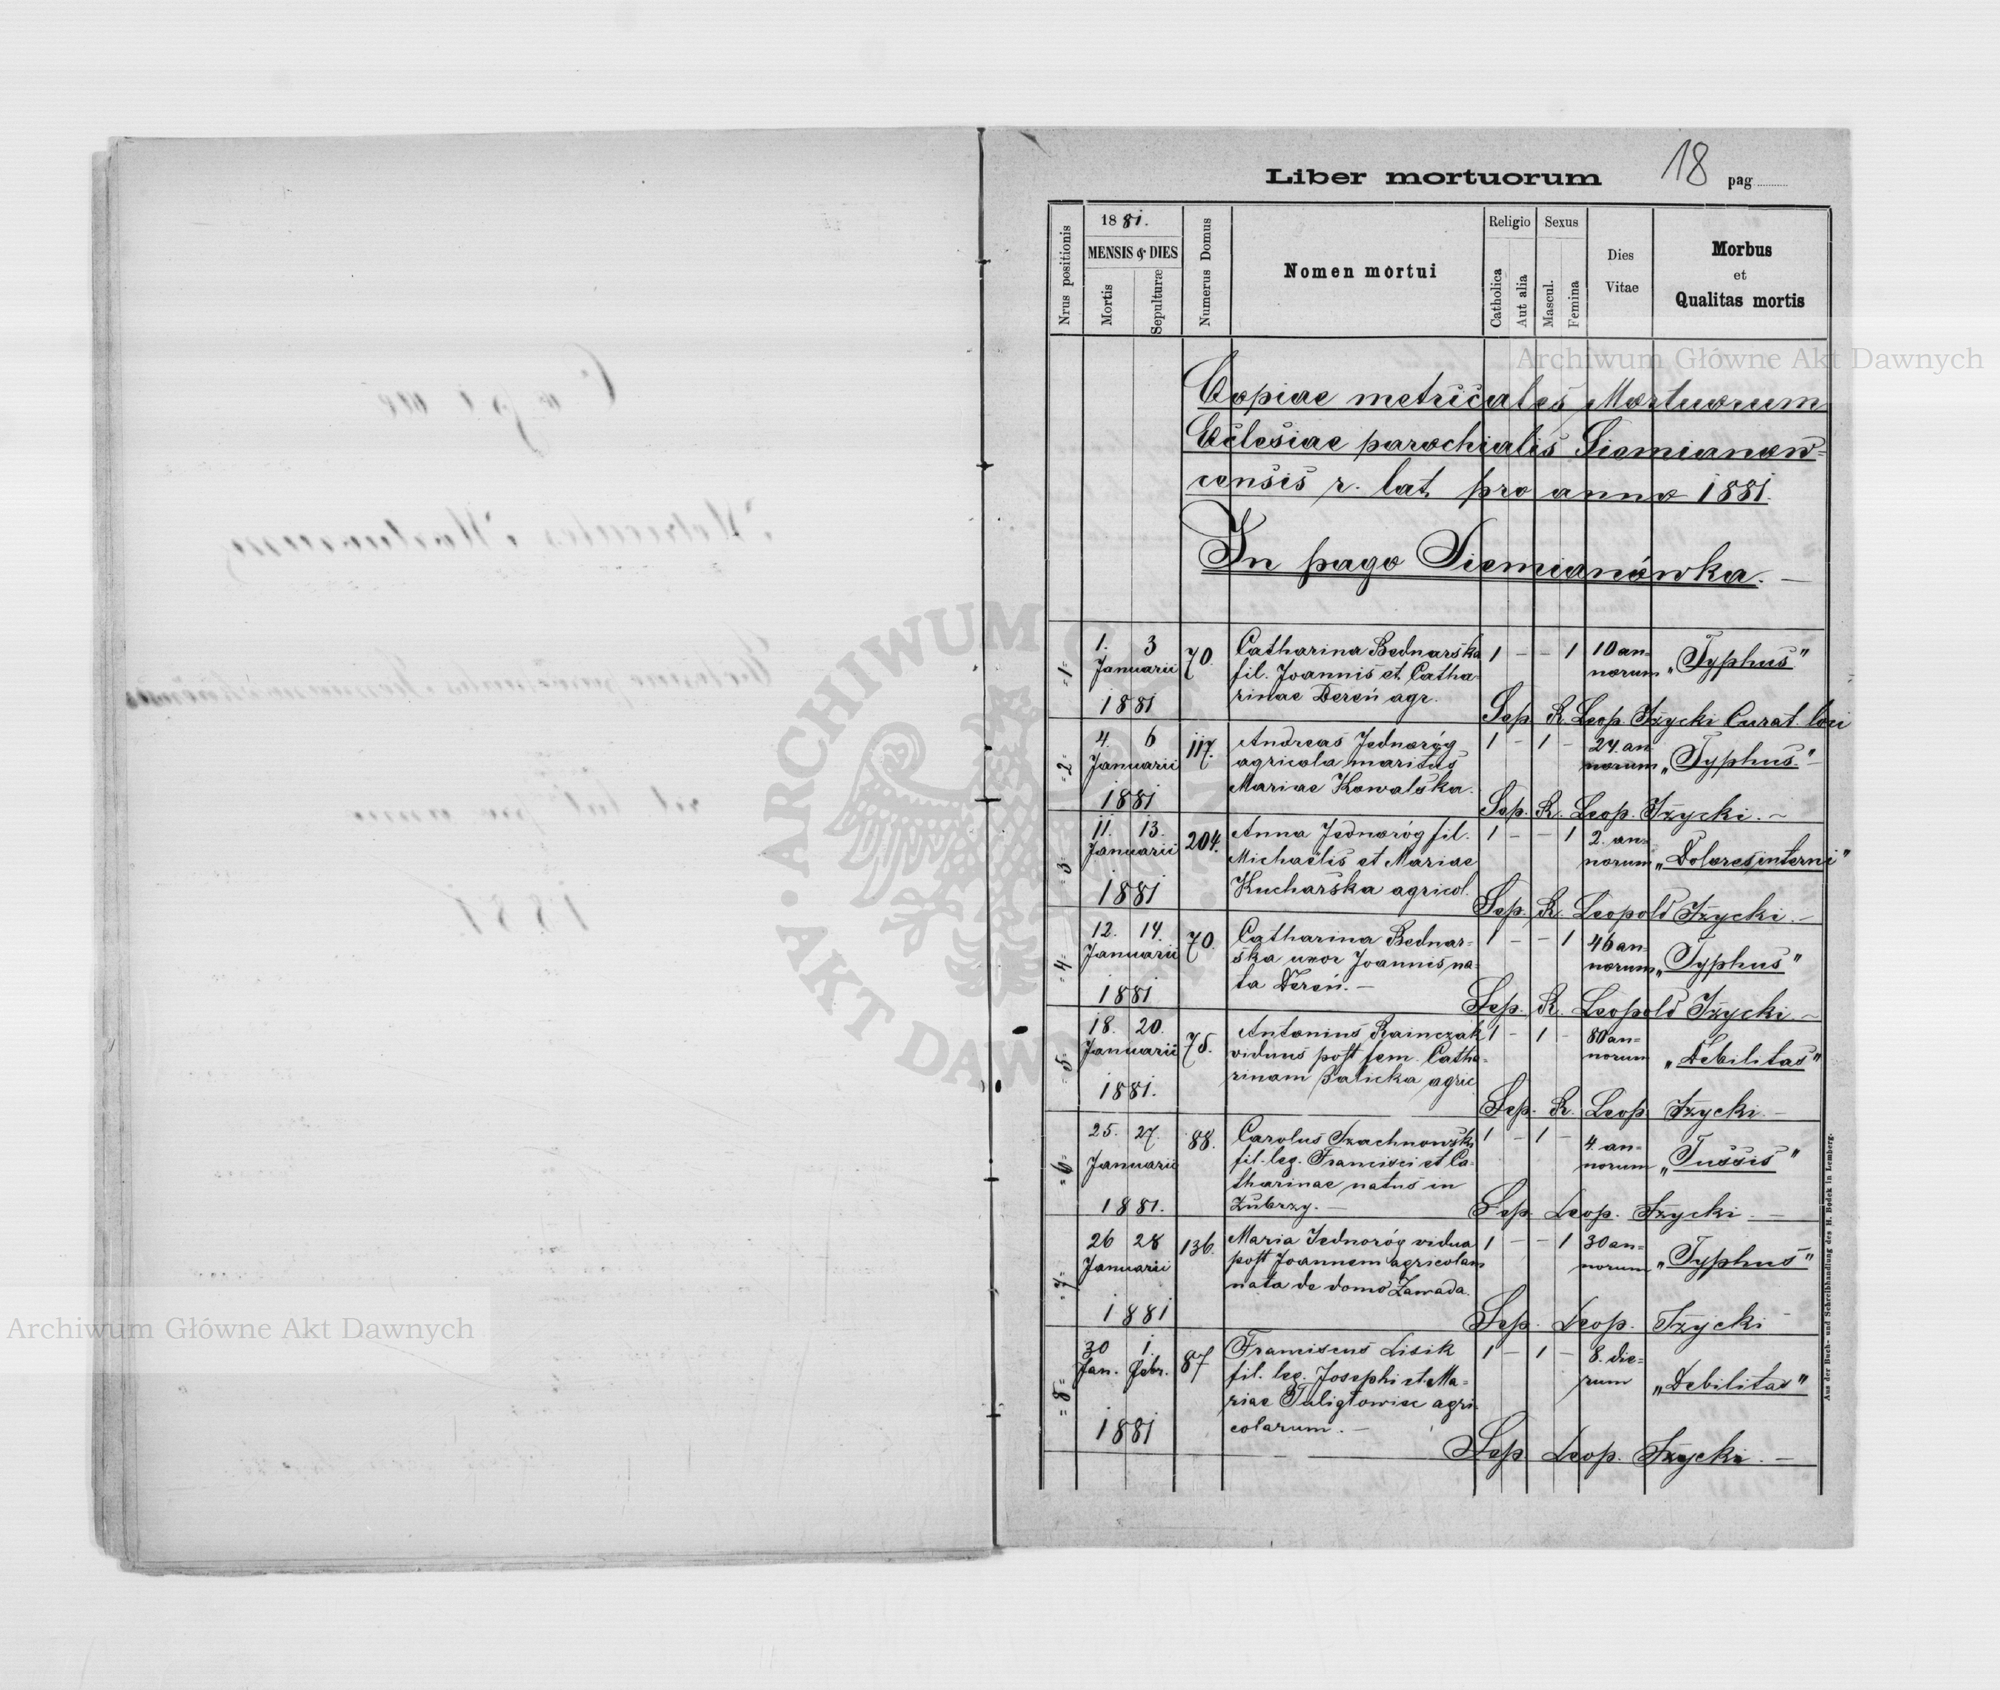 Liber mortuorum 18 pag
Nrus positionis
1881.
MENSIS & DIES
Mortis
Sepulturæ
Numerus Domus
Nomen mortui
Religio
Catholica
Aut alia
Sexus
Mascul.
Femina
Dies
Vitae
Morbus
et
Qualitas mortis
Copiae metricales Mortuorum
Ecclesiae parochialis Siemianow=
censis r. lat pro anno 1881.
In pago Siemianówka. —
=1= 1. 3 70. Catharina Bednarska 1 – – 1 10 an=
Januarii fil. Joannis et Catha= norum "Typhus"
1881 rinae Dereń agr.
Sep. R. Leop. Iżycki Curat. loci
=2= 4. 6 117. Andreas Jednoróg 1 – 1 – 24. an
Januarii agricola maritus norum "Typhus."
1881 Mariae Kowalska.
Sep. R. Leop. Iżycki. –
=3= 11. 13. 204. Anna Jednoróg fil. 1 – – 1 2. an=
Januarii Michaëlis et Mariae norum "Dolores interni"
1881 Kucharska agricol.
Sep. R. Leopold Iżycki. –
=4= 12. 14. 70. Catharina Bednar= 1 – – 1 46 an=
Januarii ska uxor Joannis na= norum "Typhus"
1881 ta Dereń. –
Sep. R. Leopold Iżycki. –
=5= 18. 20. 75. Antonius Rainczak 1 – 1 – 80 an=
Januarii viduus post fem. Catha= norum "Debilitas"
1881. rinam Salicka agric
Sep. R. Leop. Iżycki. –
=6= 25. 27. 88. Carolus 1 – 1 – 4. an=
Januarii fil. leg. Francisci et Ca= norum "Tussis"
tharinae natus in
1881. Zubrzy. –
Sep. Leop. Iżycki. –
=7= 26 28 136. Maria Jednoróg vidua 1 – – 1 30 an=
Januarii post Joannem agricolam norum "Typhus"
nata de domo Zawada.
1881
Sep. Leop. Iżycki
=8= 30 1. 87 Franciscus Lisik 1 – 1 – 8. die=
Jan. Febr. fil. leg. Josephi et Ma= rum "Debilitas"
riae Tuligłowiec agri=
1881 colarum. –
Sep. Leop. Iżycki. –
Aus der Buch- und Schreibhandlung des H. Bodek in Lemberg.
Archiwum Główne Akt Dawnych
Archiwum Główne Akt Dawnych